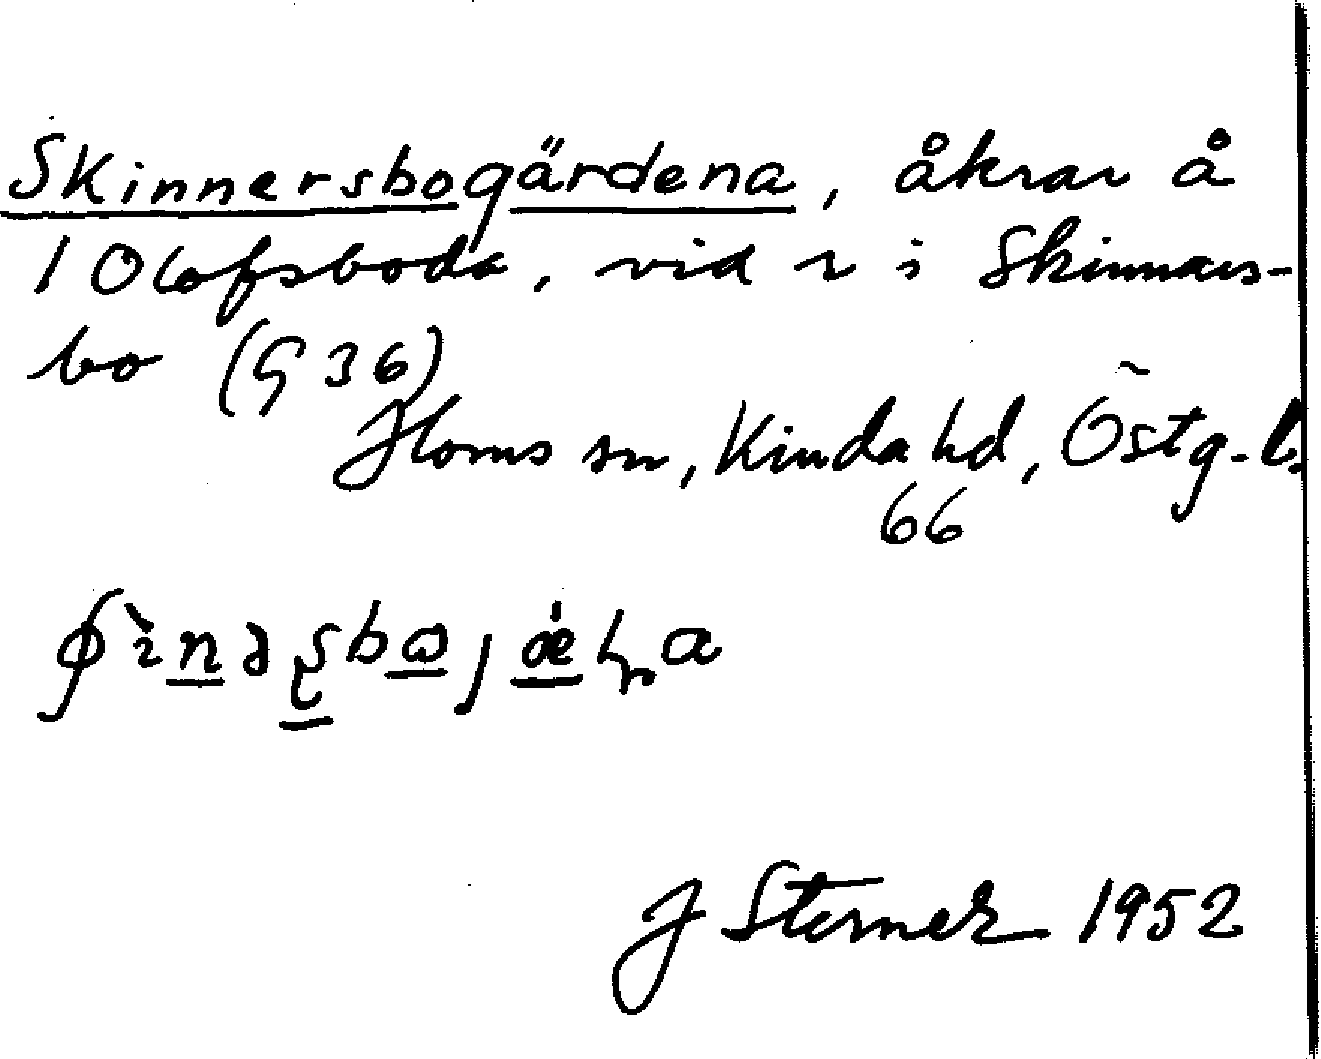 Skinnersbogärdena, åkrar å
1 Olofsboda, vid r i Skinnars-
bo (G 36)
Horns sn, Kinda hd, Östg.l.
66
J Sterner 1952